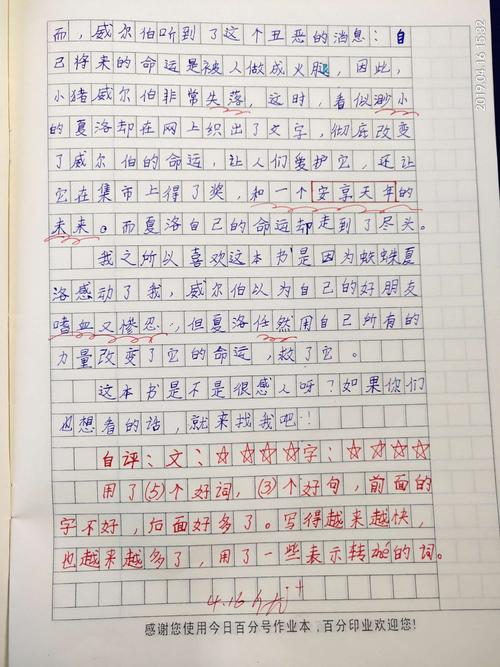 2019.04.16 15:32
而，威尔伯听到了这个丑恶的消息：自
己将来的命运是被人做成火腿，因此，
小猪威尔伯非常失落，这时，看似渺小
的夏洛却在网上织出了文字，彻底改变
了威尔伯的命运，让人们爱护它，还让
它在集市上得了奖，和一个安享天年的
未来。而夏洛自己的命运却走到了尽头。
我之所以喜欢这本书是因为蜘蛛夏
洛感动了我，威尔伯以为自己的好朋友
嗜血又惨忍，但夏洛任然用自己所有的
力量改变了它的命运，救了它。
这本书是不是很感人呀？如果你们
也想看的话，就来找我吧！
自评：文：☆☆☆☆字：☆☆☆☆
用了(5)个好词，(3)个好句，前面的
字不好，后面好多了。写得越来越快，
也越来越多了，用了一些表示转zhé的词。
4.16
感谢您使用今日百分号作业本，百分印业欢迎您！